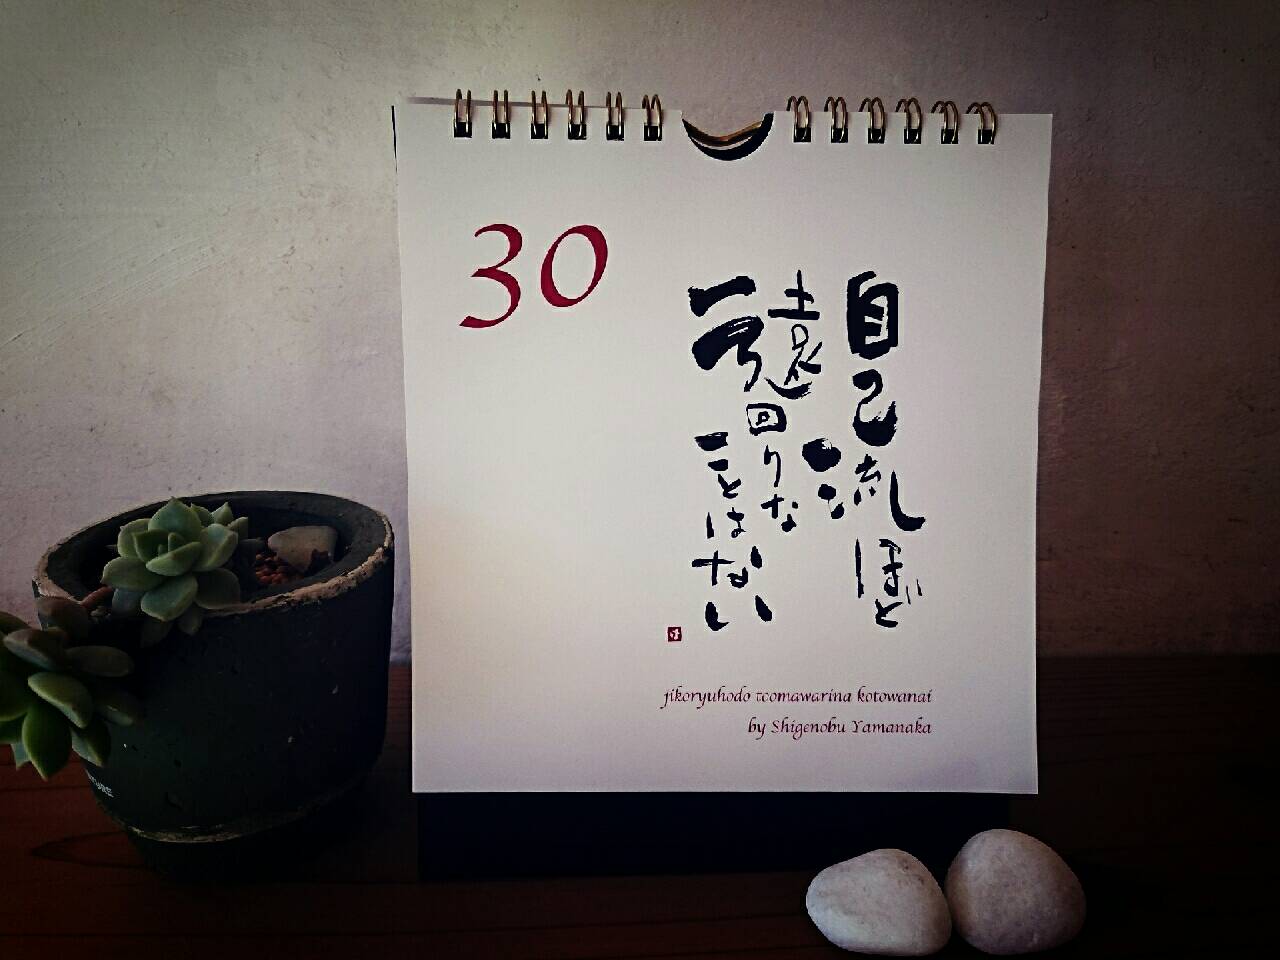 30
自己流ほど
遠回りな
ことはない
jikoryuhodo toomawarina kotowanai
by Shigenobu Yamanaka